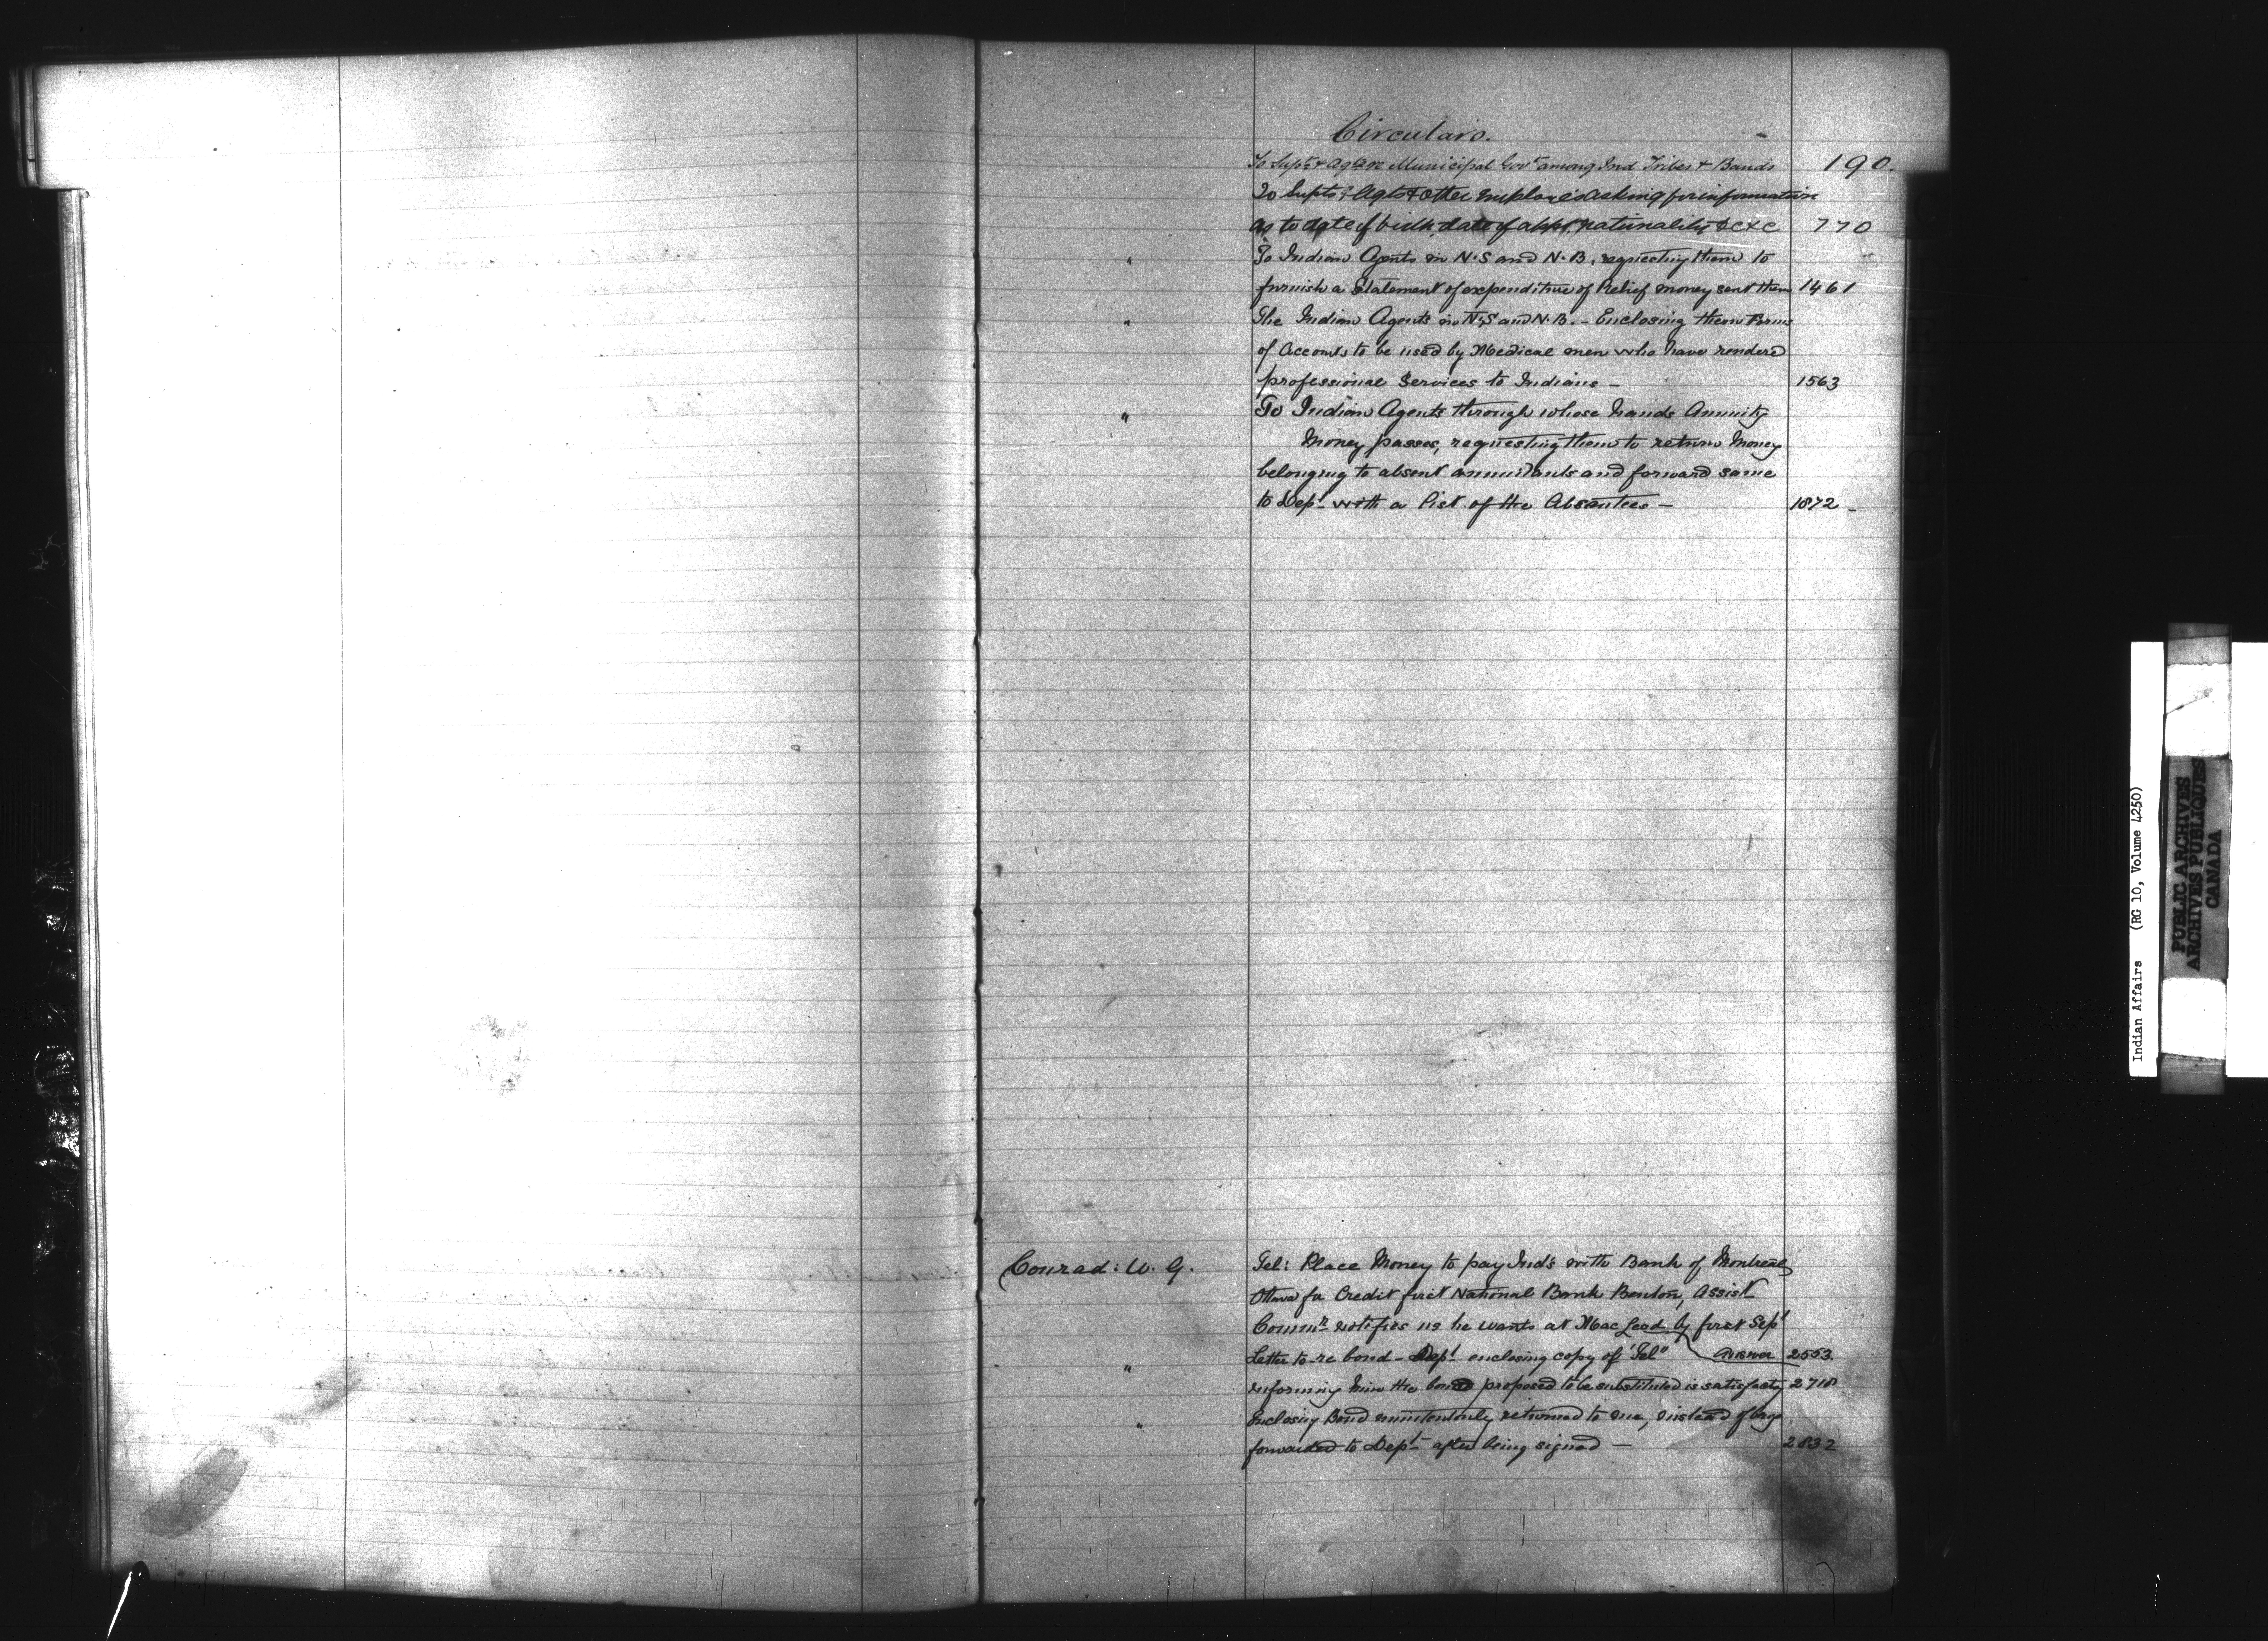 Circulars.
To Supts & Agts re Municipal Govt among Ind Tribes & Bands 190.
To Supts, Agts & other employees asking for information
as to date of birth, date of appt, nationality &c &c 770
" To Indian Agents in N.S and N.B. requesting them to
furnish a Statement of expenditure of Relief money sent them 1461
" The Indian Agents in N.S and N.B. - Enclosing them Forms
of Accounts to be used by Medical men who have rendered
professional Services to Indians - 1563
" To Indian Agents through whose hands Annuity
Money passes, requesting them to return Money
belonging to absent annuitants and forward same
to Dept with a list of the Absentees - 1872 -
Conrad: W. G. Tel: Place Money to pay Inds with Bank of Montreal,
Ottawa for Credit first National Bank Benton, Assist
Commr notifies us he wants at MacLeod by first Sept
" Letter to re bond - Dept enclosing copy of "Tel" Answer 2553
informing him the bond proposed to be substituted is satisfacty 2718
" Enclosing Bond returned to me, instead of
forwarded to Dept after being signed - 2832
Indian Affairs (RG 10, Volume 4250)
PUBLIC ARCHIVES
ARCHIVES PUBLIQUES
CANADA